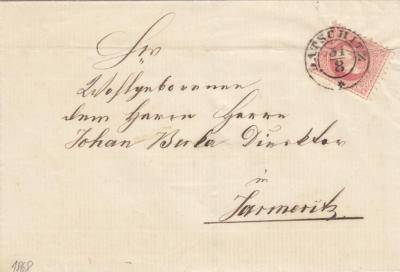 DATSCHITZ
31/8
Sr
Wohlgeborenen
dem Herrn Herrn
Johan Berka Direktor
in
Jarmeritz
1868